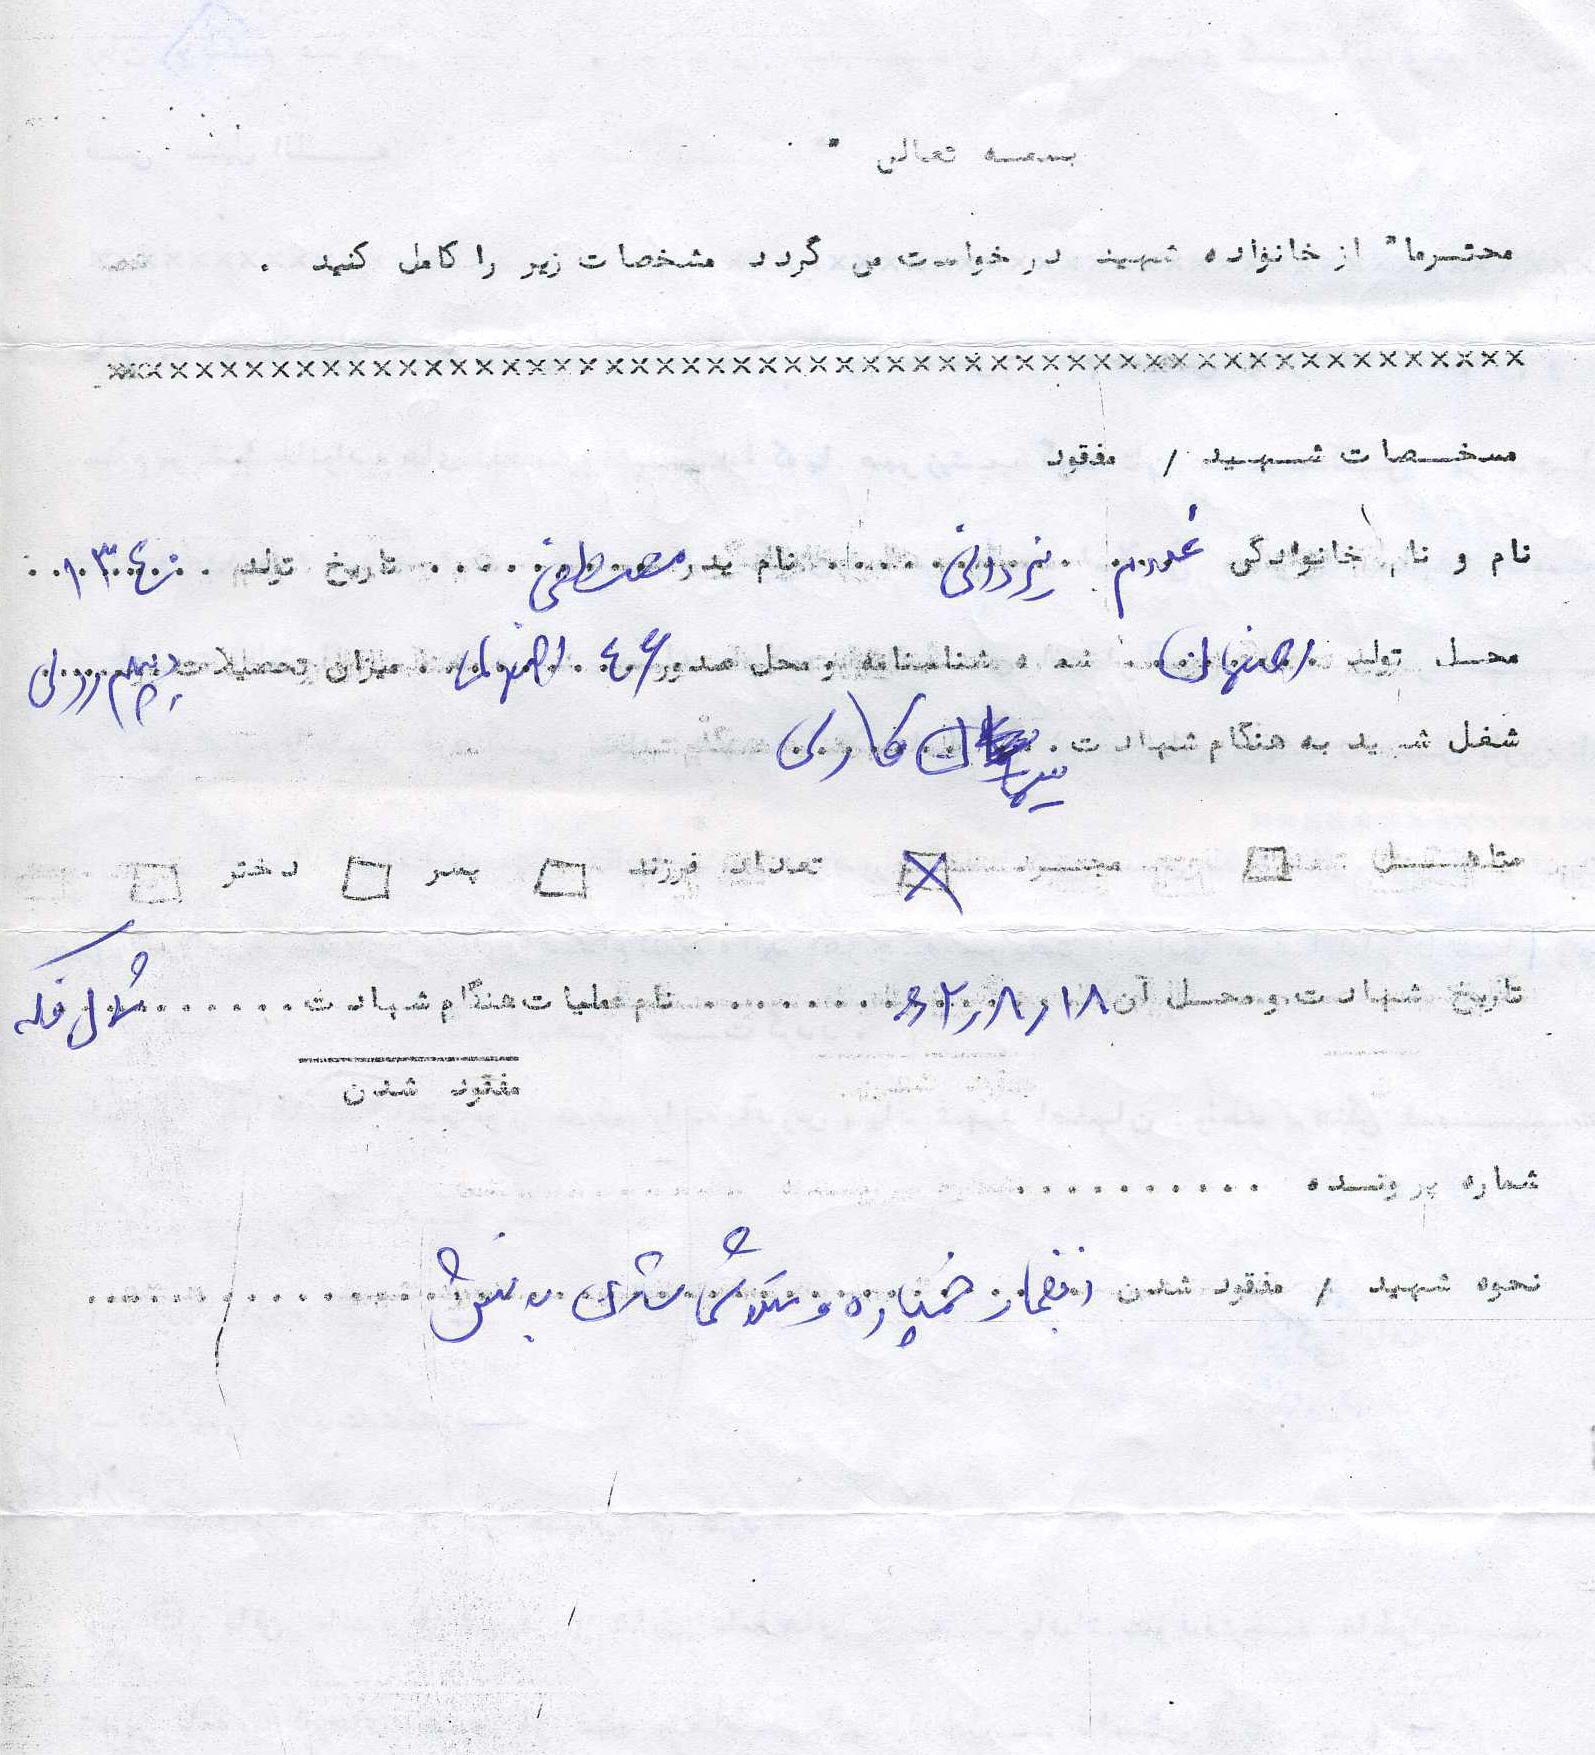 بسمه تعالی
محترما" از خانواده شهید درخواست می گردد مشخصات زیر را کامل کنید .
××××××××××××××××××××××××××××××××××××××××××××××××××××××
مشخصات شهید / مفقود
نام و نام خانوادگی یزدانی نام پدر مصطفی تاریخ تولد ۱۳۴۰
محل تولد اصفهان شماره شناسنامه و محل صدور ۴۶ اصفهان میزان تحصیلات
شغل شهید به هنگام شهادت سیمان کاری
متاهل مجرد تعداد فرزند پسر دختر
تاریخ شهادت و محل آن ۱۸ر۸ر۶۲ نام عملیات هنگام شهادت فکه
مفقود شدن
شماره پرونده ..........
نحوه شهید / مفقود شدن انفجار خمپاره و